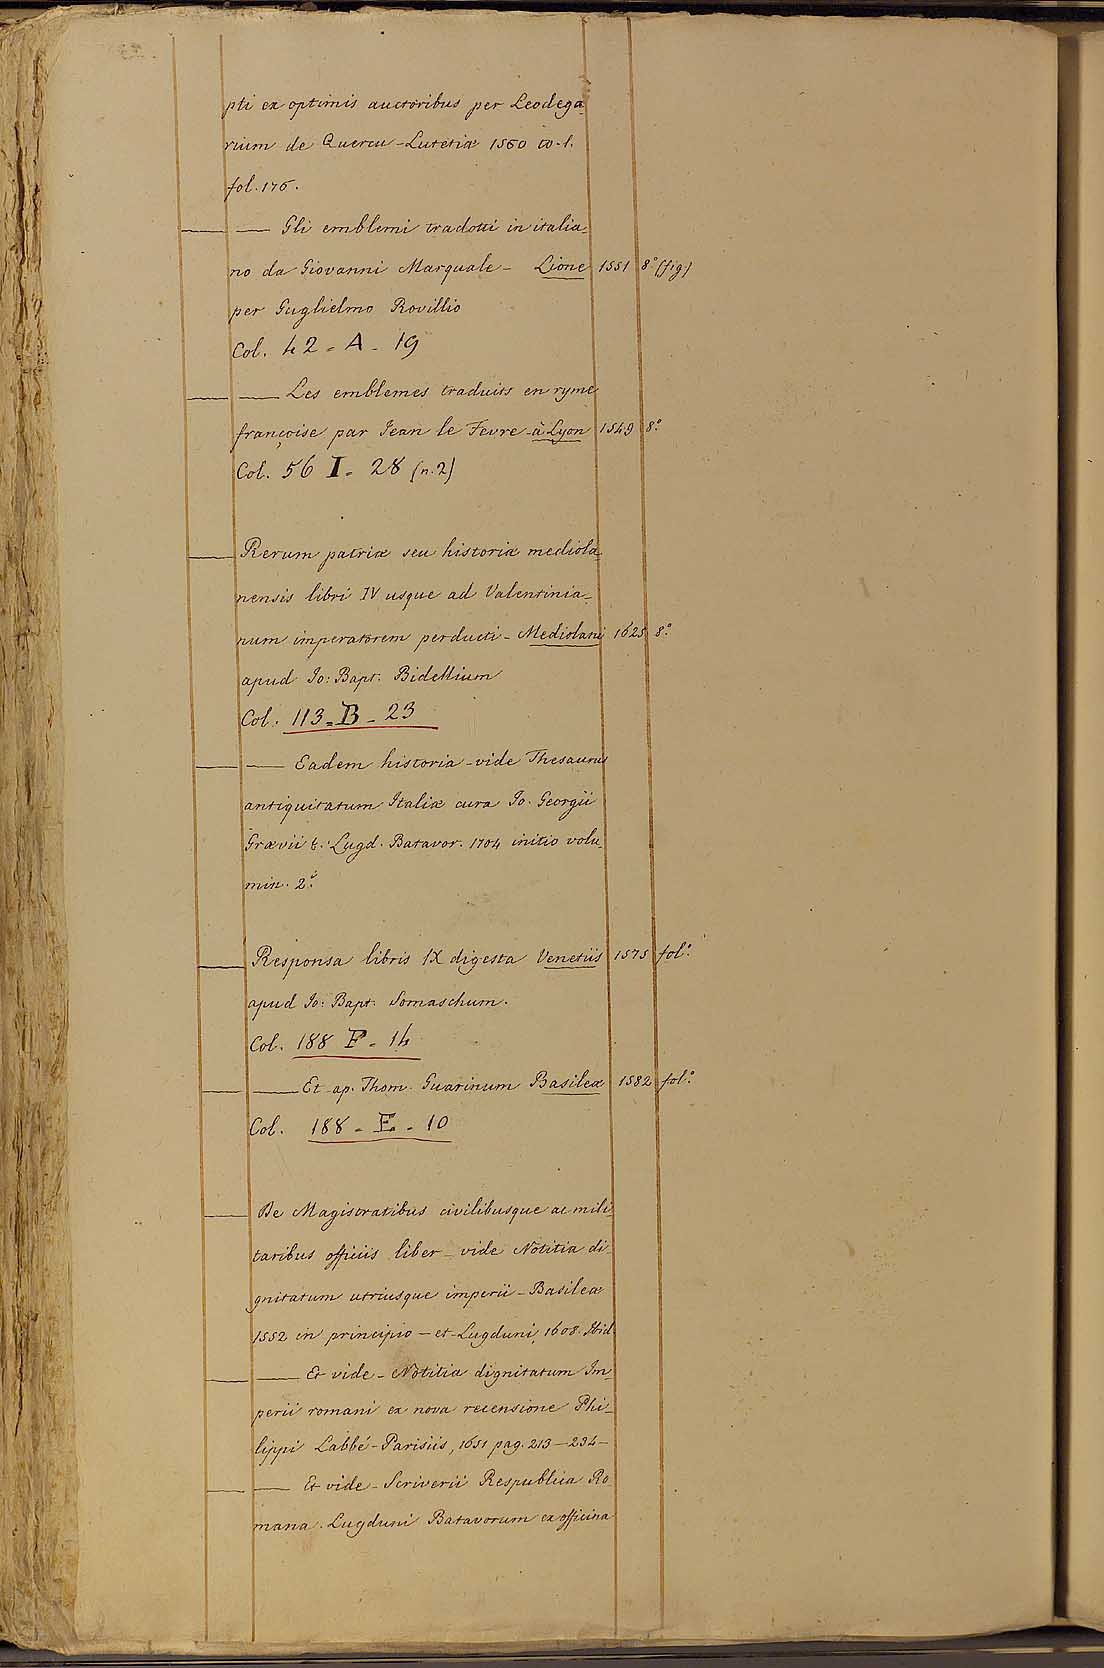 pti ex optimis auctoribus per Leodega-
rium de Quercu - Lutetiæ 1560
fol. 176.
—— —— Gli emblemi tradotti in italia-
no da Giovanni Marquale - Lione 1551 8° (fig)
per Guglielmo Rovillio
Col. 42 - A - 19
—— —— Les emblemes traduits en ryme
françoise par Jean le Fevre - à Lyon 1549 8°
Col. 56 I - 28 (n. 2)
—— Rerum patriæ seu historiæ mediola-
nensis libri IV usque ad Valentinia-
num imperatorem perducti - Mediolani 1625 8°
apud Jo: Bapt: Bidellium
Col. 113 - B - 23
—— —— Eadem historia - vide Thesaurus
antiquitatum Italiæ cura Jo. Georgii
Grævii &. Lugd. Batavor. 1704 initio volu-
min. 2.i
—— Responsa libris IX digesta Venetiis 1575 fol.°
apud Jo: Bapt: Somaschum.
Col. 188 F - 14
—— —— Et ap. Thom. Guarinum Basileæ 1582 fol.°
Col. 188 - E - 10
—— De Magistratibus civilibusque ac mili-
taribus officiis liber - vide Notitia di-
gnitatum utriusque imperii - Basileæ
1552 in principio - et Lugduni, 1608. Ibid.
—— —— Et vide - Notitia dignitatum Im-
perii romani ex nova recensione Phi-
lippi Labbé - Parisiis, 1651 pag. 213 - 234 -
—— —— Et vide - Scriverii Respublica Ro-
mana. Lugduni Batavorum ex officina